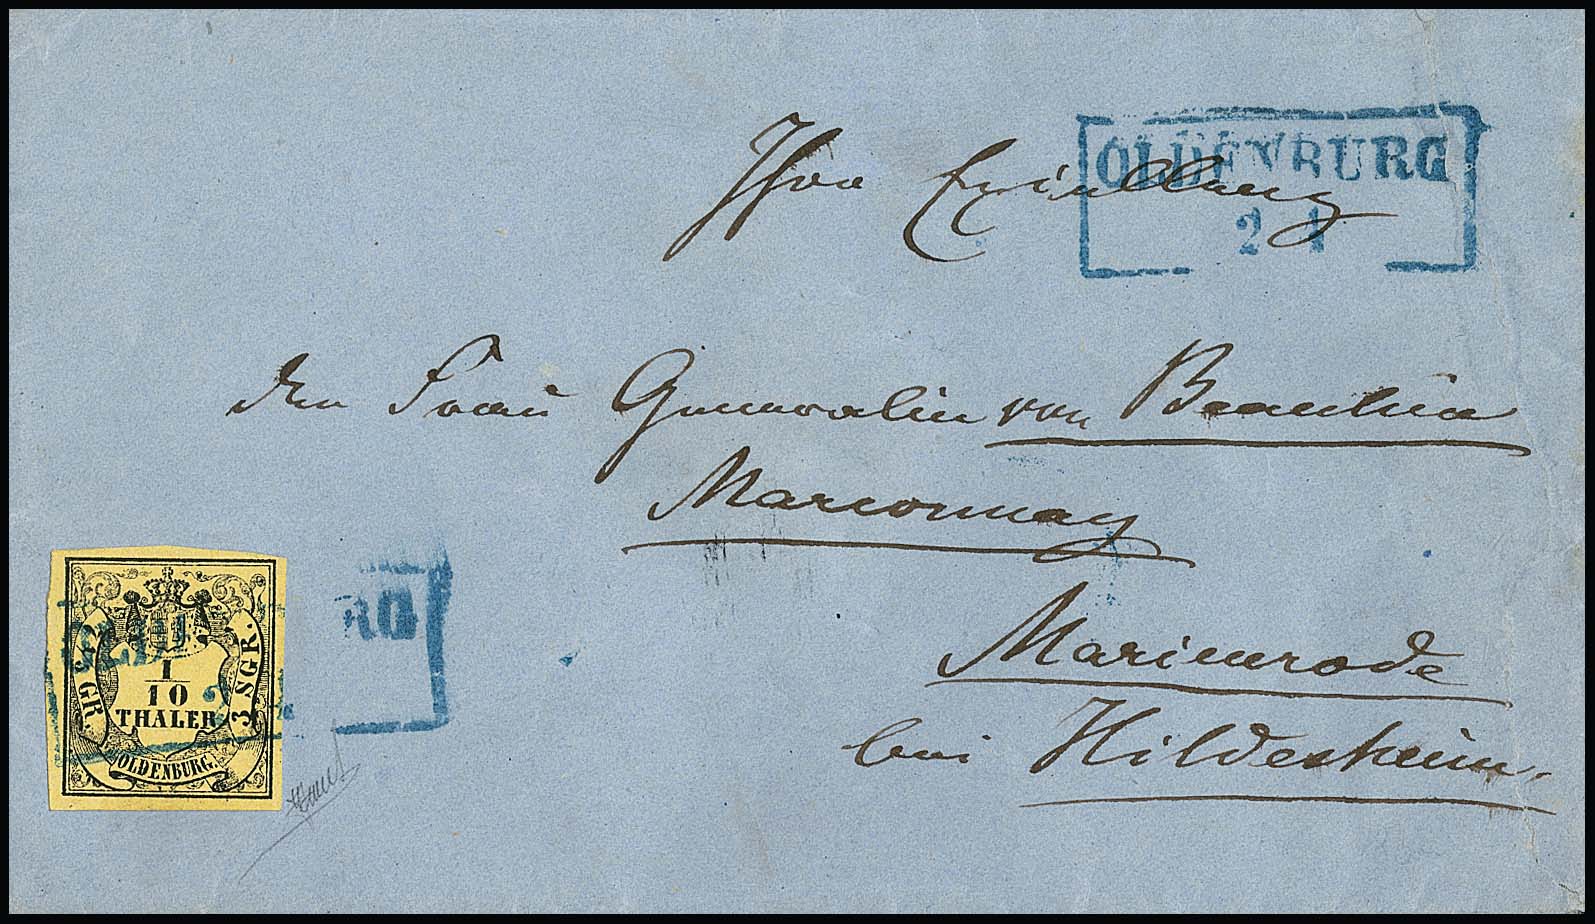 OLDENBURG
2 1
Ihro Excellenz
der Frau Generalin von Beaulieu
Marconnay
Marienrode
bei Hildesheim.
RG
1
10
THALER
3 SGR.
GR.
OLDENBURG.